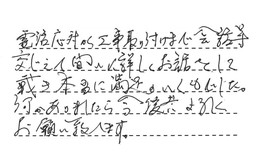 電話応対から工事取り付けまで会話等
交じえて聞いて詳しくお話をして
戴き本当に満足がいくものでした。
何かありましたら今後共よろしく
お願い致します。